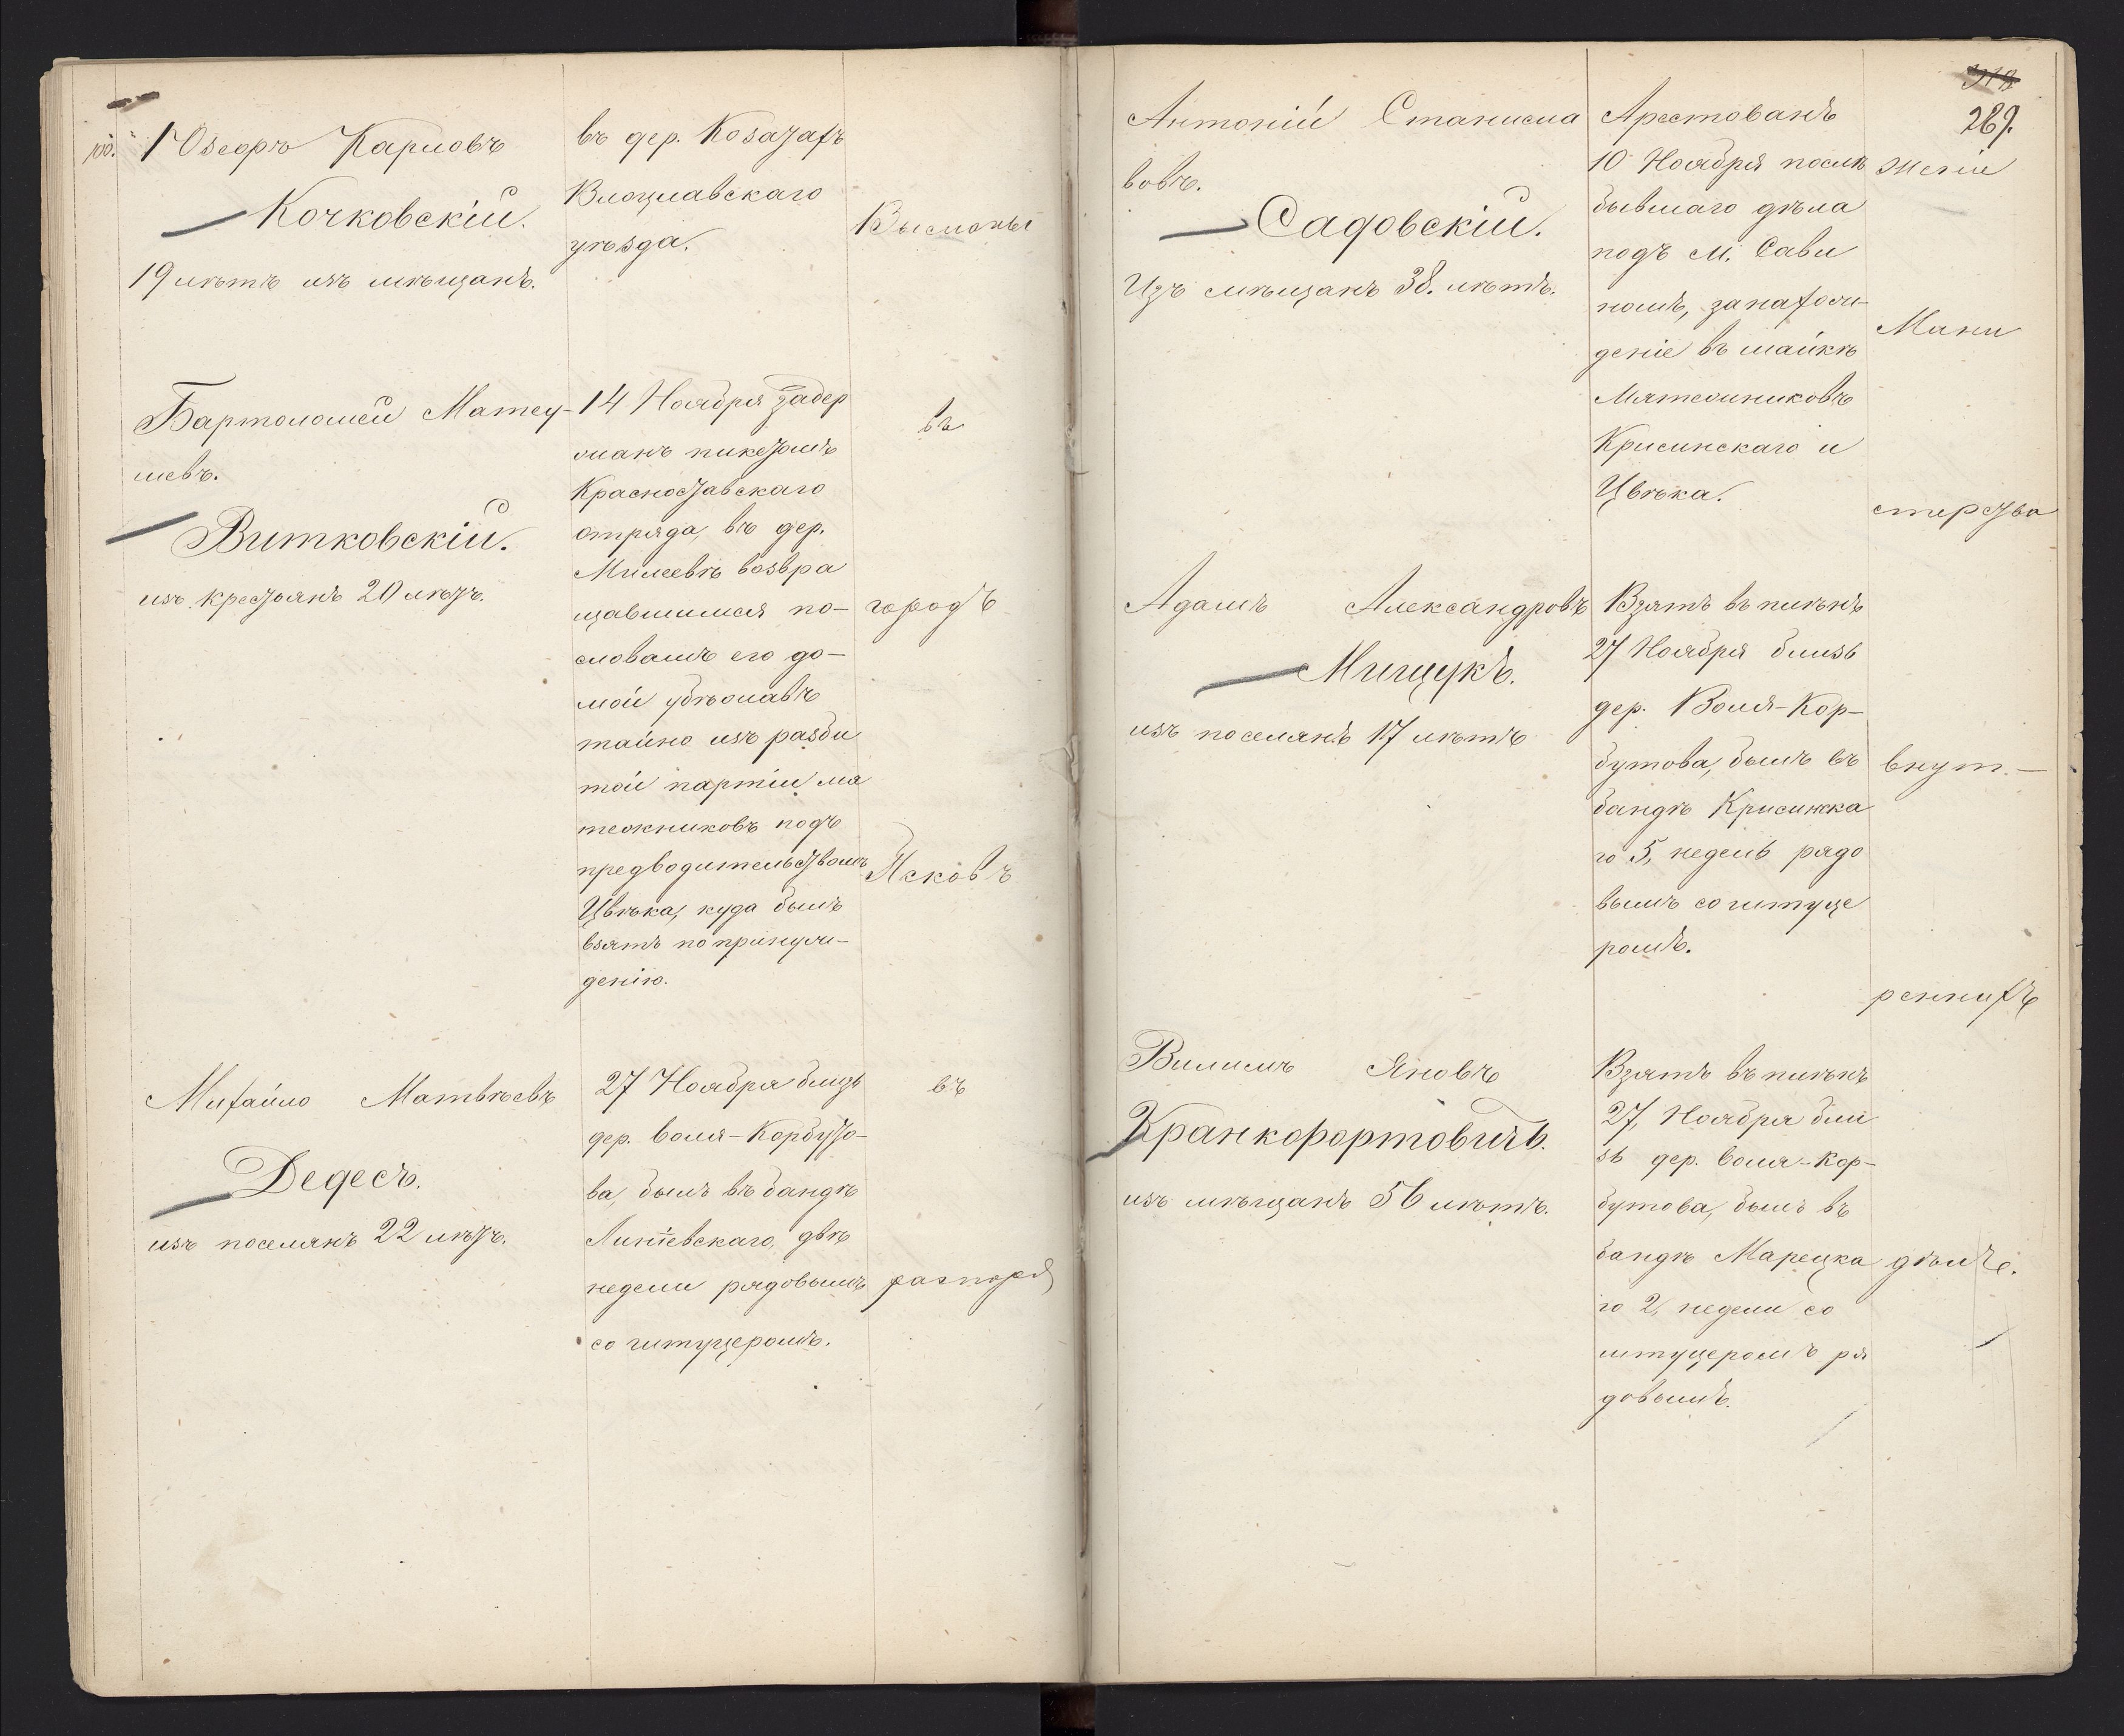 100.
Юзефъ Карловъ
Кочковскій.
19 лѣтъ изъ мѣщанъ.
въ дер. Козатахъ
Влоцлавскаго
уѣзда.
Высланы
Бартоломей Матеу-
шевъ.
Витковскій.
изъ крестьянъ 20 лѣтъ.
14 Ноября задер
жанъ пикетомъ
Красноставскаго
отряда, въ дер.
Милеевѣ возвра
щавшимся по-
словамъ его до-
мой убѣжавъ
тайно изъ разби
той партіи мя
тежниковъ подъ
предводительствомъ
Цвѣка, куда былъ
взятъ по принуж-
денію.
въ
городъ
Псковъ
Михайло Матвѣевъ
Дедесъ.
изъ поселянъ 22 лѣтъ.
27 Ноября близь
дер. Воля-Корбуто-
ва, былъ въ бандѣ
Линіевскаго, двѣ
недели рядовымъ
со штуцеромъ.
въ
распоря
289.
Антоній Станисла
вовъ.
Садовскій.
Изъ мѣщанъ 38. лѣтъ.
Арестованъ
10 Ноября послѣ
бывшаго дѣла
подъ м. Сави
номъ, за нахож-
деніе въ шайкѣ
Мятежниковъ
Крисинскаго и
Цвѣка.
женіе
Мини
стерства
Адамъ Александровъ
Мищукъ.
изъ поселянъ 17 лѣтъ
Взятъ въ плѣнъ
27 Ноября близь
дер. Воля-Кор-
бутова, былъ въ
бандѣ Крисинска
го 5, недель рядо
вымъ со штуце
ромъ.
внут-
реннихъ
Вилимъ Яновъ
Кранкофортовичъ.
изъ мѣщанъ 56 лѣтъ.
Взятъ въ плѣнъ
27, Ноября бли
зь дер. Воля-Кор-
бутова, былъ въ
бандѣ Марецка
го 2, недели со
штуцеромъ ря
довымъ.
дѣлъ.